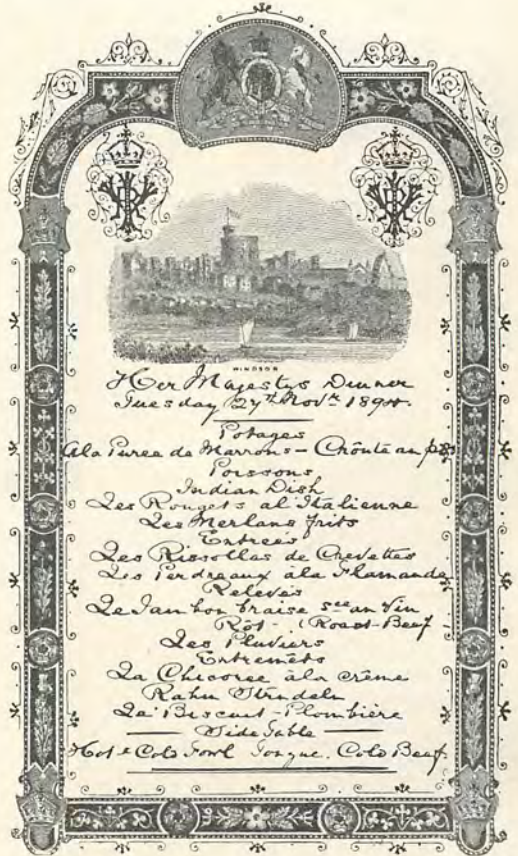 WINDSOR
Her Majestys Dinner
Tuesday 27th Novr 1894.
Potages
A la Puree de Marrons - Croûte au pot
Poissons
Indian Dish
Les Rougets al'Italienne
Les Merlans frits
Entrees
Les Rissollas de Crevettes
Les Perdreaux àla Flamande
Releves
Le Jambon braise sce au Vin
Rôt - Roast-Beef
Les Pluviers
Entremets
La Chicoree àla crème
Rahm
La Biscuit-Plombière
Side Table
Hot & Cold Fowl Tongue. Cold Beef